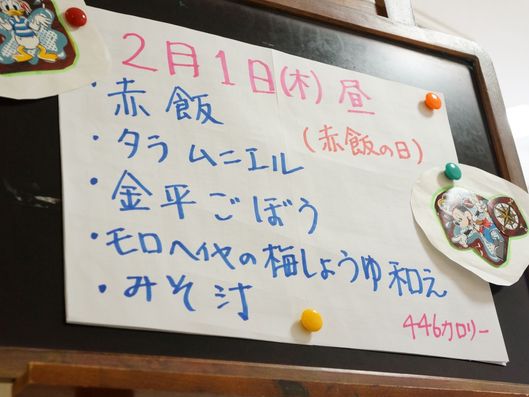 2月1日(木) 昼
・赤飯
(赤飯の日)
・タラムニエル
・金平ごぼう
・モロヘイヤの梅しょうゆ和え
・みそ汁
446カロリー